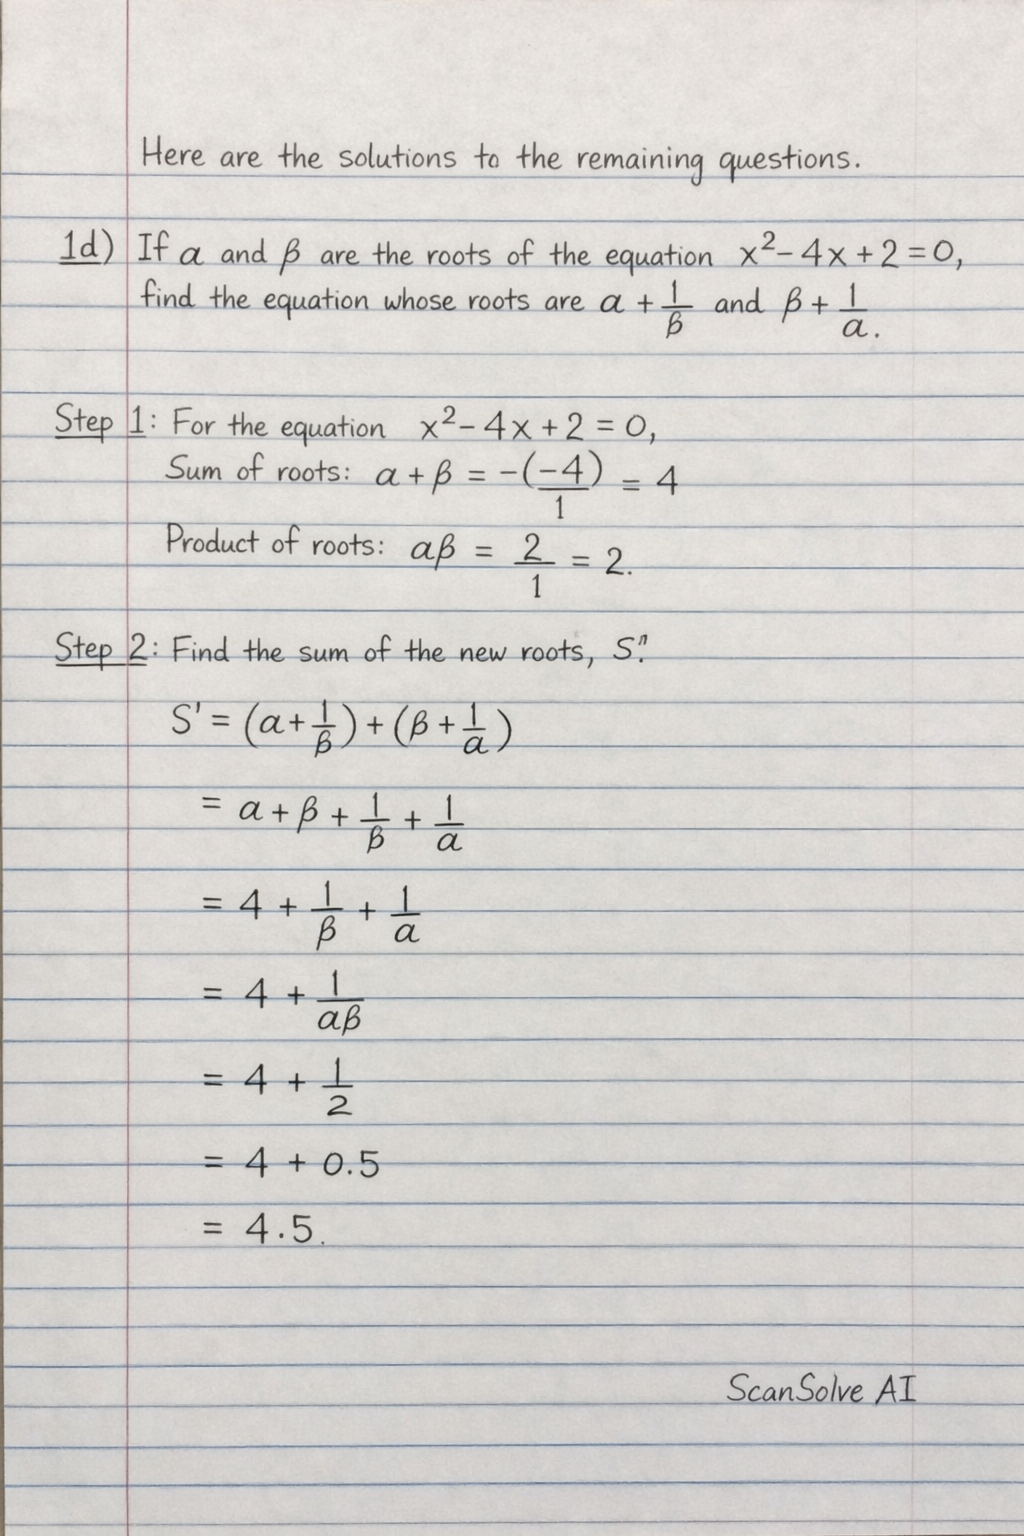 Here are the solutions to the remaining questions.
1d) If α and β are the roots of the equation x² - 4x + 2 = 0,
find the equation whose roots are α + 1/β and β + 1/α.
Step 1: For the equation x² - 4x + 2 = 0,
Sum of roots: α + β = -(-4)/1 = 4
Product of roots: αβ = 2/1 = 2.
Step 2: Find the sum of the new roots, S".
S' = (α + 1/β) + (β + 1/α)
= α + β + 1/β + 1/α
= 4 + 1/β + 1/α
= 4 + 1/αβ
= 4 + 1/2
= 4 + 0.5
= 4.5.
ScanSolve AI